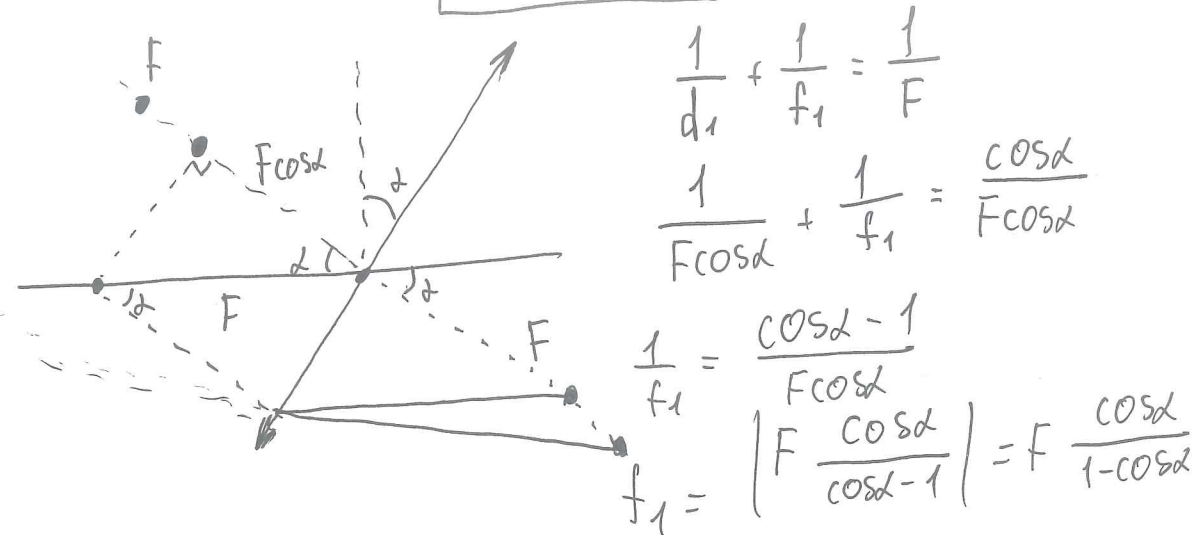 F
Fcosα
α
α
α
F
α
F
1/d₁ + 1/f₁ = 1/F
1/Fcosα + 1/f₁ = cosα/Fcosα
1/f₁ = cosα - 1/Fcosα
f₁ = |F cosα/cosα-1| = F cosα/1-cosα